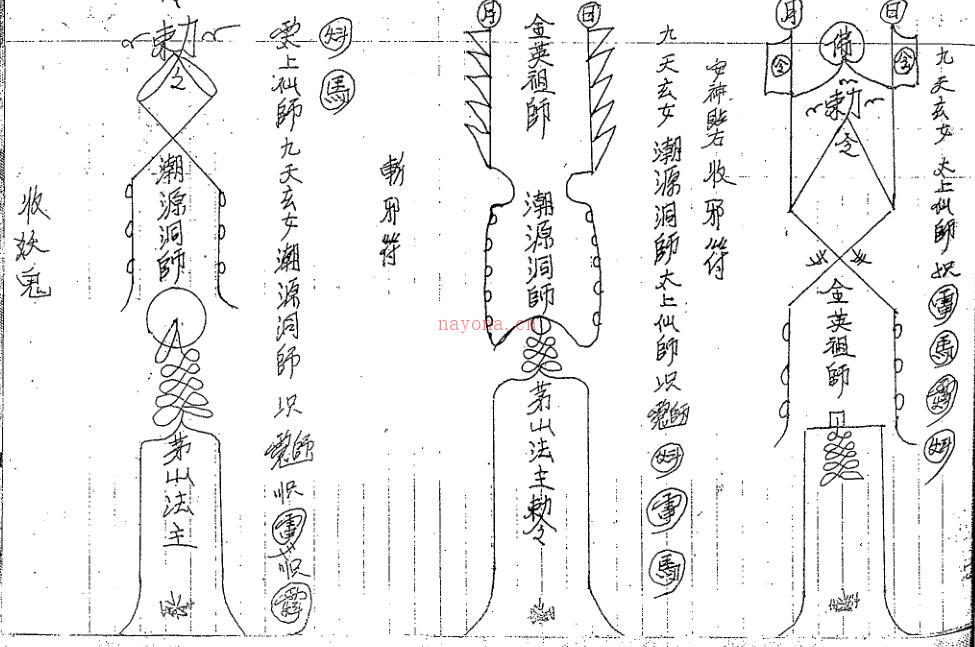 日
月
佛
令
令
勅令
金英祖師
九天玄女 太上仙師
雷
馬
安神貼右 收邪符
日
月
金英祖師
潮源洞師
茅山法主勅令
九天玄女 潮源洞師 太上仙師
雷
馬
斬邪符
勅令
潮源洞師
茅山法主
雲上仙師 九天玄女 潮源洞師
雷
馬
收妖鬼
nayona.cn